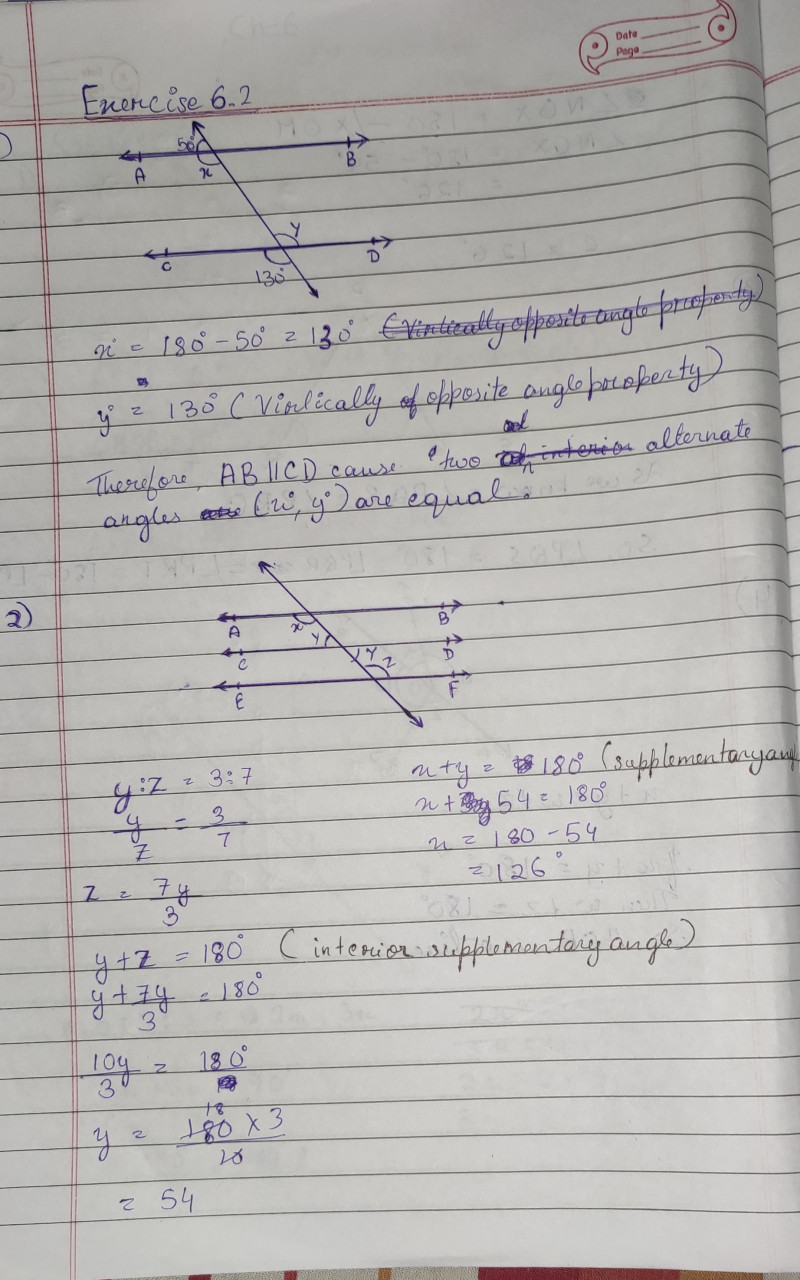 Date
Page
Exercise 6.2
1)
50°
A
x
B
y
C
D
130°
x° = 180° - 50° = 130° (Virtically opposite angle property)
y° = 130° (Virtically of opposite angle property)
Therefore, AB || CD cause two interior alternate
angles (x°, y°) are equal.
2)
A
x
B
y
C
y
D
z
E
F
y:z = 3:7
y/z = 3/7
z = 7y/3
y+z = 180° (interior supplementary angle)
y + 7y/3 = 180°
10y/3 = 180°
y = 180 × 3 / 10
18
= 54
x+y = 180° (supplementary ang
x + 54 = 180°
x = 180 - 54
= 126°